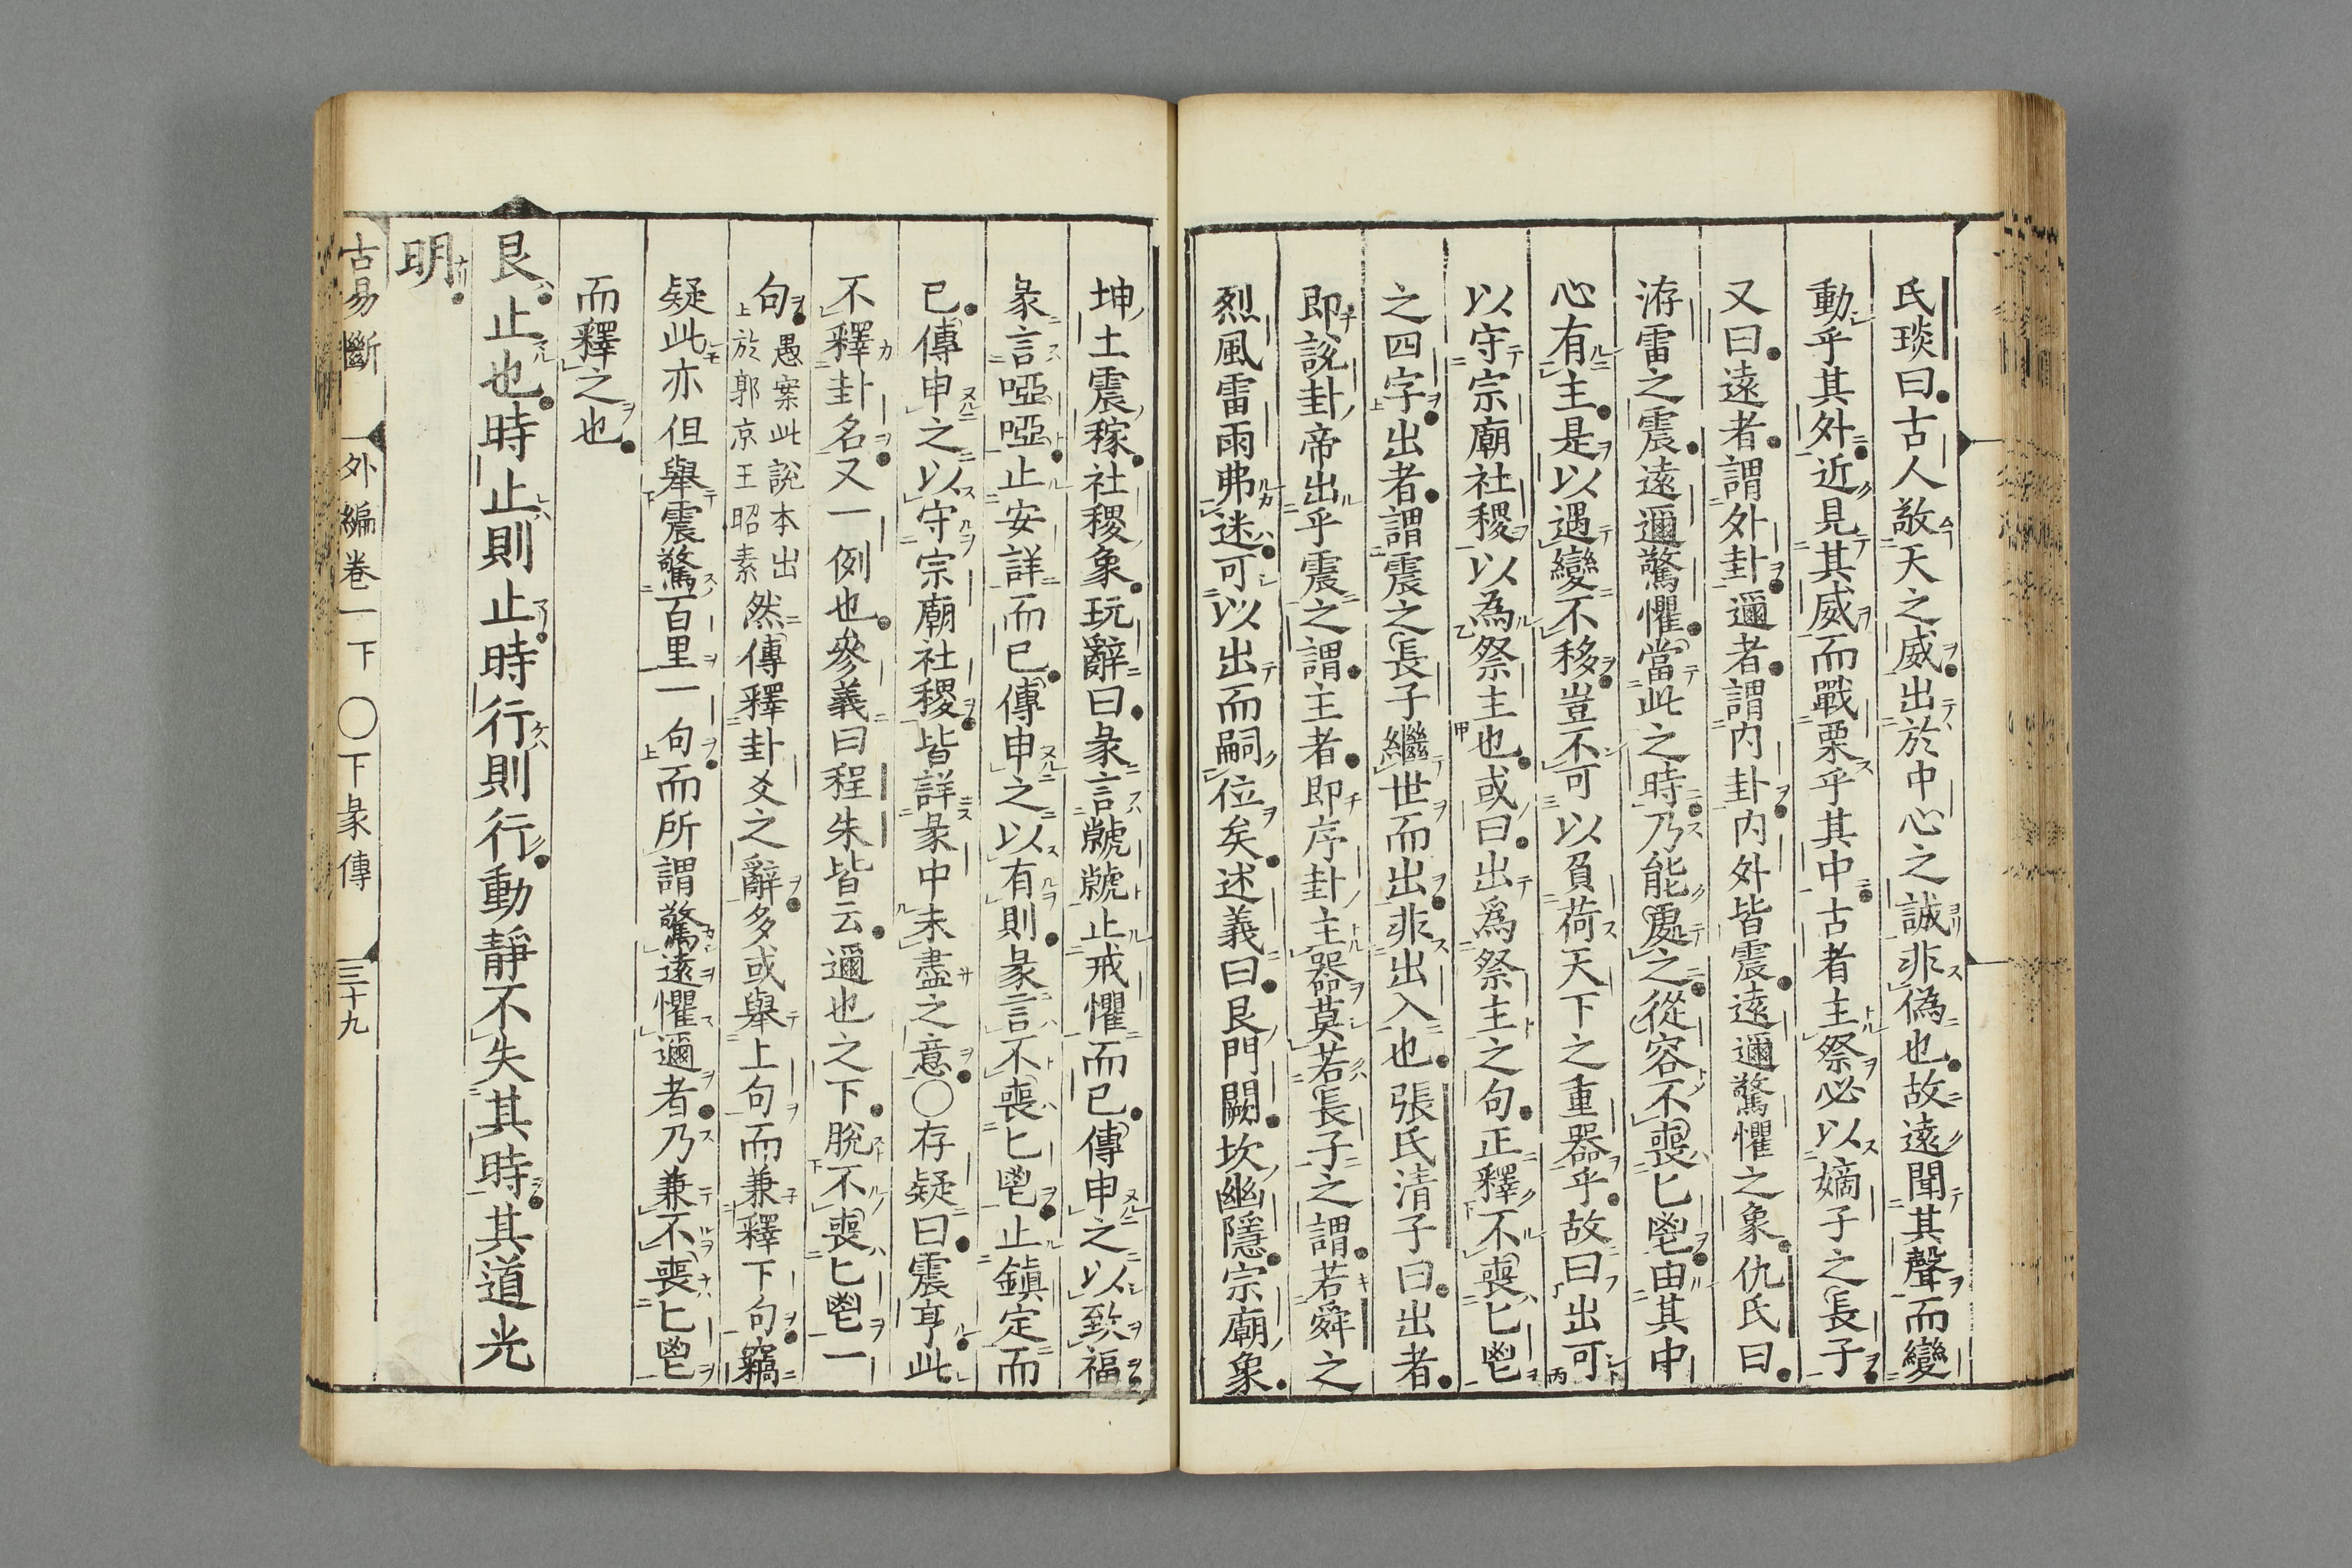 氏琰曰古人敬天之威出於中心之誠非偽也故遠聞其聲而變
動乎其外近見其威而戰栗乎其中古者主祭必以嫡子之長子
又曰遠者謂外卦邇者謂内卦内外皆震遠邇驚懼之象仇氏曰
洊雷之震遠邇驚懼當此之時乃能處之從容不喪匕鬯由其中
心有主是以遇變不移豈不可以負荷天下之重器乎故曰出可
以守宗廟社稷以為祭主也或曰出爲祭主之句正釋不喪匕鬯
之四字出者謂震之長子繼世而出非出入也張氏清子曰出者
即説卦帝出乎震之謂主者即序卦主器莫若長子之謂若舜之
烈風雷雨弗迷可以出而嗣位矣述義曰艮門闕坎幽隱宗廟象
坤土震稼社稷象玩辭曰彖言虩虩止戒懼而已傳申之以致福
彖言啞啞止安詳而已傳申之以有則彖言不喪匕鬯止鎮定而
已傳申之以守宗廟社稷皆詳彖中未盡之意〇存疑曰震亨此
不釋卦名又一例也參義曰程朱皆云邇也之下脫不喪匕鬯一
句愚案此説本出上於郭京王昭素然傳釋卦爻之辭多或舉上句而兼釋下句竊
疑此亦但舉震驚百里一句而所謂驚遠懼邇者乃兼不喪匕鬯
而釋之也
艮止也時止則止時行則行動靜不失其時其道光
明
古易斷 外編卷一下 〇下彖傳 三十九